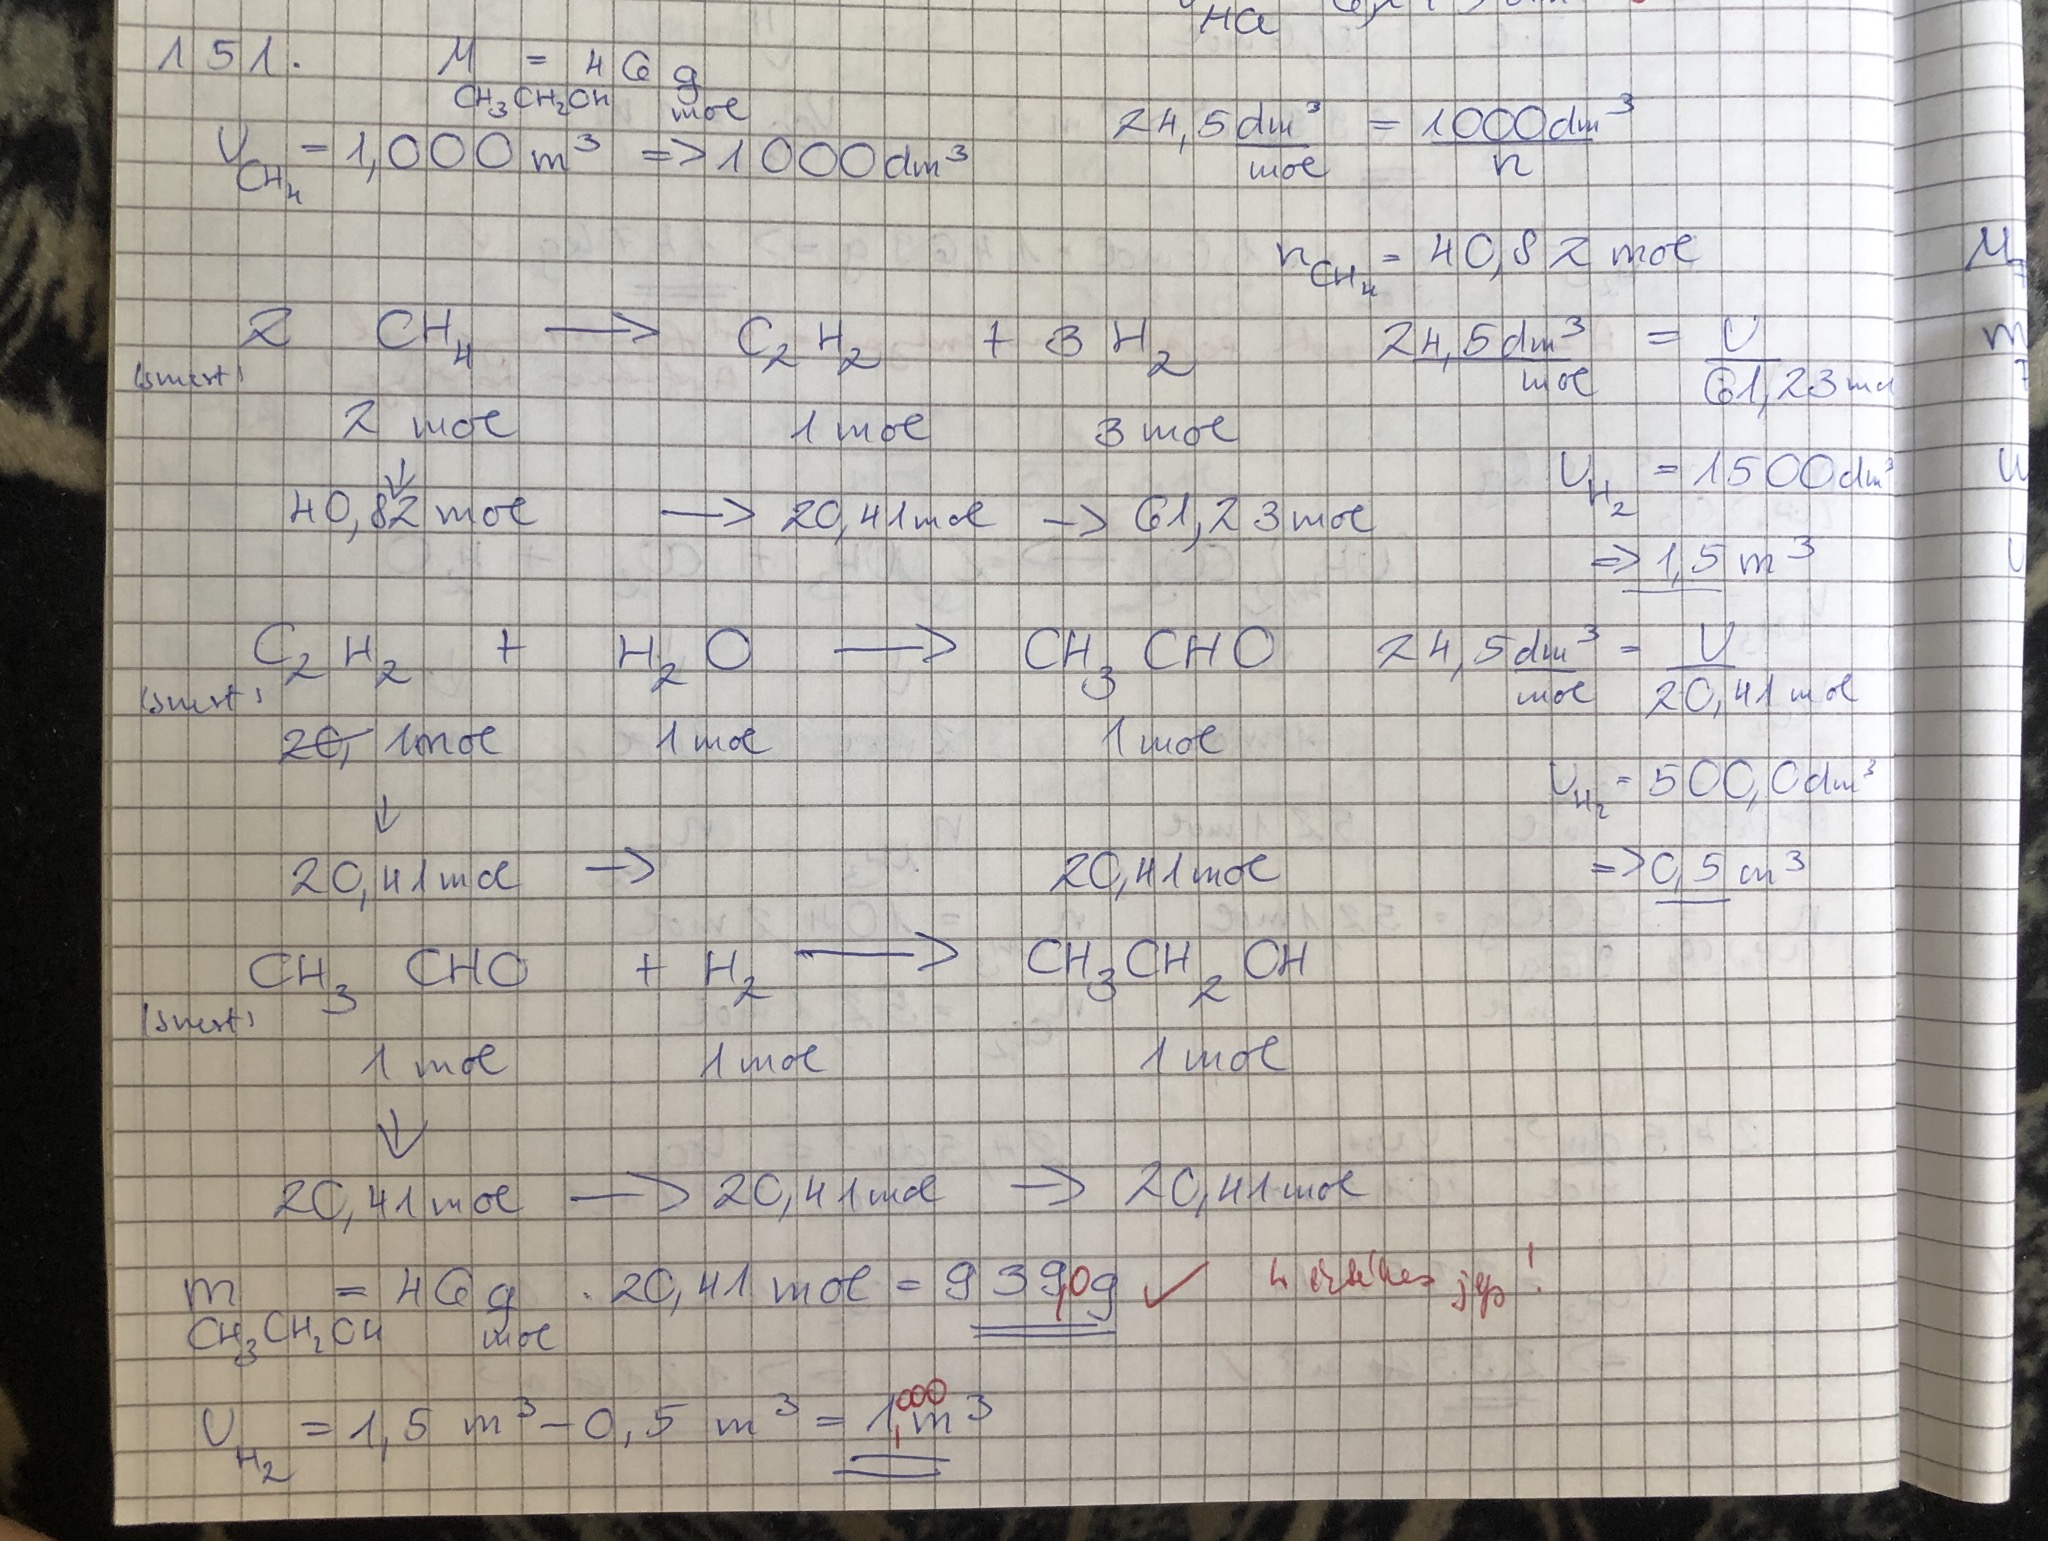 HCl
151. M CH₃CH₂OH = 46 g/mol
V CH₄ = 1,000 m³ => 1000 dm³
24,5 dm³/mol = 1000 dm³/n
n CH₄ = 40,82 mol
2 CH₄ → C₂H₂ + 3 H₂
(ismert)
2 mol 1 mol 3 mol
↓
40,82 mol → 20,41 mol → 61,23 mol
24,5 dm³/mol = V/61,23 mol
V H₂ = 1500 dm³
=> 1,5 m³
C₂H₂ + H₂O → CH₃CHO
(ismert)
20, 1 mol 1 mol 1 mol
↓
20,41 mol → 20,41 mol
24,5 dm³/mol = V/20,41 mol
V H₂ = 500,0 dm³
=> 0,5 m³
CH₃ CHO + H₂ → CH₃CH₂OH
(ismert)
1 mol 1 mol 1 mol
↓
20,41 mol → 20,41 mol → 20,41 mol
m CH₃CH₂OH = 46 g/mol · 20,41 mol = 939,0 g ✓ 4 értékes jegy!
V H₂ = 1,5 m³ - 0,5 m³ = 1,000 m³